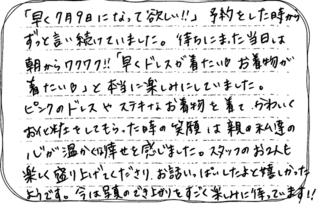 「早く7月9日になって欲しい!!」予約をした時から
ずっと言い続けていました。待ちにまった当日は
朝からワクワク!!「早くドレスが着たい♡お着物が
着たい♡」と本当に楽しみにしていました。
ピンクのドレスやステキなお着物を着て、かわいく
お化粧をしてもらった時の笑顔は親の私達の
心が温かくなり幸せを感じました。スタッフのお2人も
楽しく盛り上げてくださり、お話いっぱいしたよと嬉しかった
ようです。今は写真のでき上がりをすごく楽しみに待っています!!